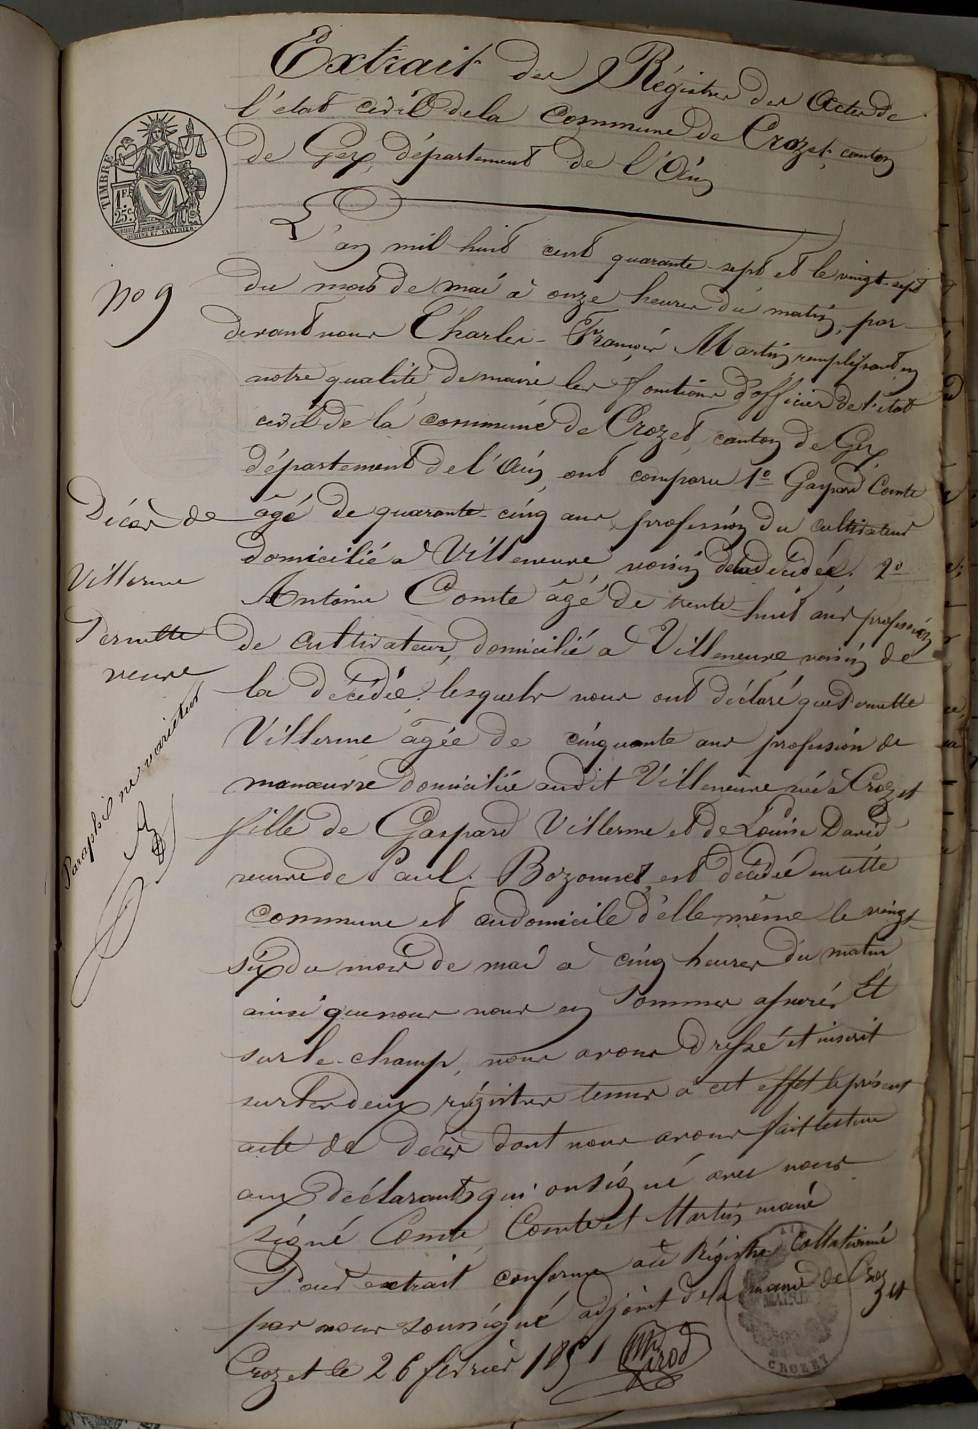 Extrait des Régistres des Actes de
l'état civil de la Commune de Crozet, canton
de Gex, département de l'Ain
TIMBRE
1 F.
25 c.
L'an mil huit cent quarante sept et le vingt-sept
No 9
du mois de mai à onze heures du matin, par-
devant nous Charles-François Martin, remplissant en
notre qualité de maire les fonctions d'officier de l'état
civil de la commune de Crozet, canton de Gex
département de l'Ain, ont comparu 1o Gaspard Comte
Décès de
Villerme
Pernette
veuve
âgé de quarante-cinq ans, profession du cultivateur
domicilié à Villeneuve voisin de la décédée. 2o
Antoine Comte âgé de trente-huit ans profession
de cultivateur, domicilié à Villeneuve voisin de
la décédée. lesquels nous ont déclaré que Pernette
Villerme âgée de cinquante ans profession de
manœuvre domiciliée audit Villeneuve née à Crozet
fille de Gaspard Villerme et de Louise David
veuve de Paul Bozonnet, est décédée en cette
commune et au domicile d'elle-même le vingt-
six du mois de mai à cinq heures du matin
ainsi que nous nous en sommes assurés Et
sur le-champ, nous avons dressé et inscrit
sur les deux régistres tenus à cet effet le présent
acte de décès dont nous avons fait lecture
aux déclarants qui ont signé avec nous
signé Comte Comte et Martin maire
Paraphé ne varietur
Pour extrait conforme au Régistre Collationné
par nous soussigné adjoint de la mairie de Crozet
Crozet le 26 février 1851
Girod
MAIRIE
CROZET